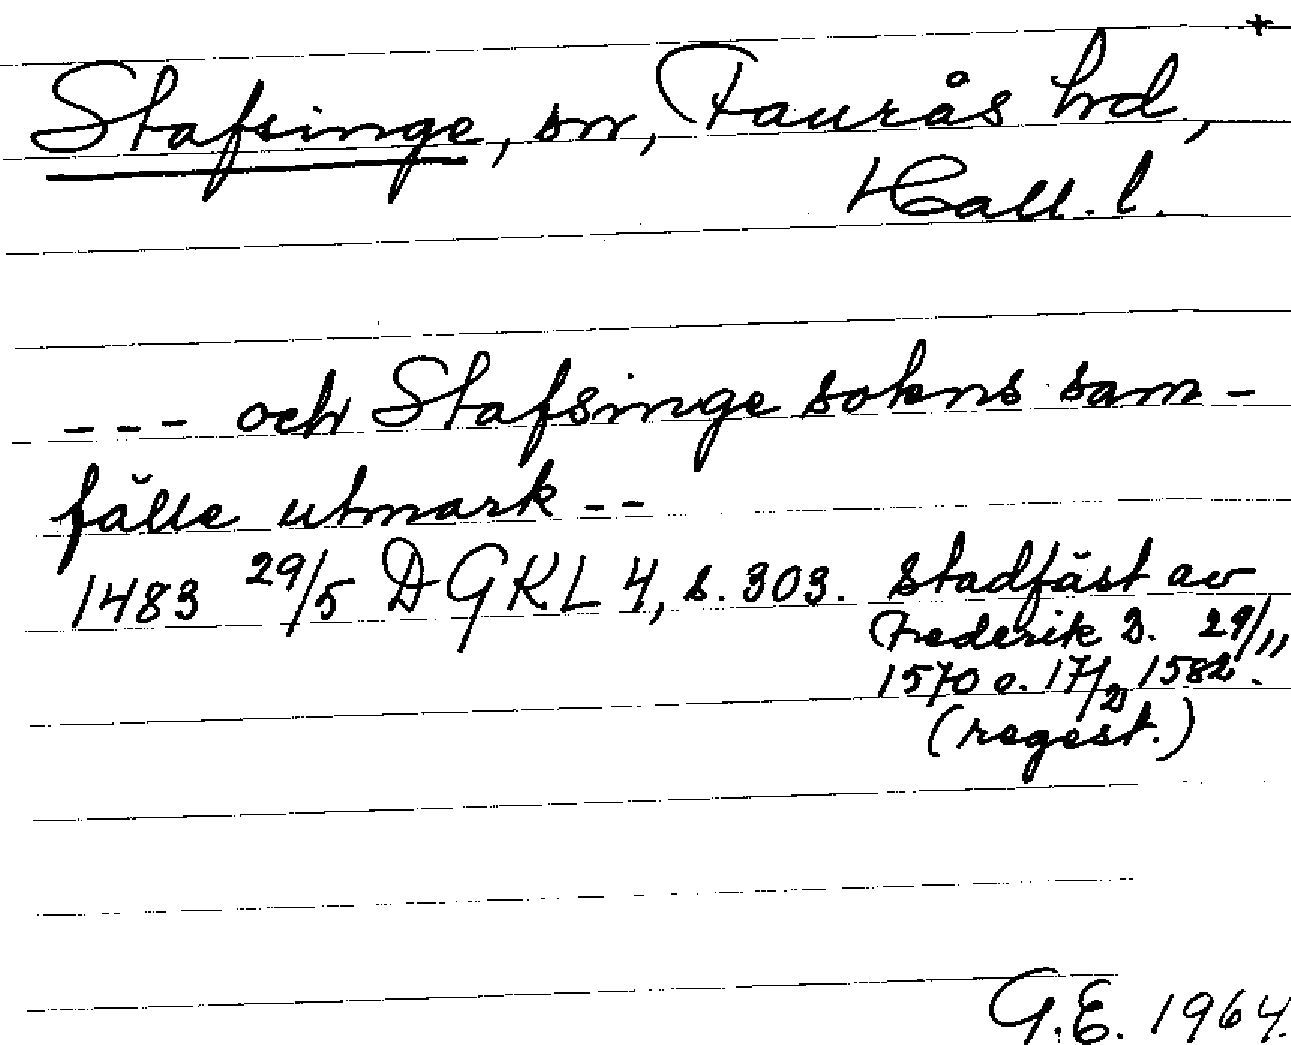 +
Stafsinge, sn, Faurås hd,
Hall. l.
--- och Stafsinge sokns sam-
fälle utmark --
1483 29/5 DGKL 4, s. 303. Stadfäst av
Frederik 2. 29/11
1570 o. 17/2 1582.
(regest.)
G.E. 1964.